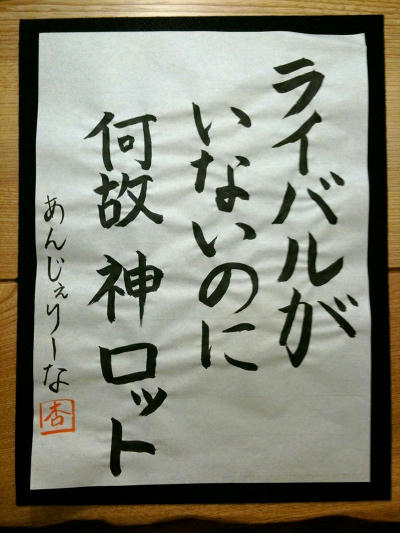 ライバルが
いないのに
何故 神ロット
あんじぇりーな
杏